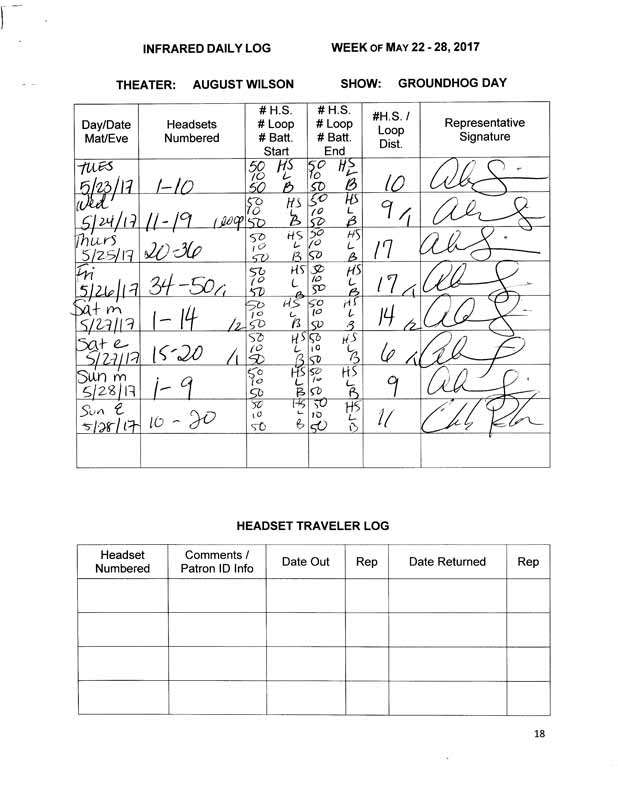 INFRARED DAILY LOG WEEK OF MAY 22 - 28, 2017
THEATER: AUGUST WILSON SHOW: GROUNDHOG DAY
Day/Date Mat/Eve Headsets Numbered # H.S. # Loop # Batt. Start # H.S. # Loop # Batt. End #H.S. / Loop Dist. Representative Signature
TUES 5/23/17 1-10 50 HS 10 L 50 B 50 HS 10 L 50 B 10
Wed 5/24/17 11-19 1 loop 50 HS 10 L 50 B 50 HS 10 L 50 B 9/1
Thurs 5/25/17 20-36 50 HS 10 L 50 B 50 HS 10 L 50 B 17
Fri 5/26/17 34-50/1 50 HS 10 L 50 B 50 HS 10 L 50 B 17/1
Sat m 5/27/17 1-14 /2 50 HS 10 L 50 B 50 HS 10 L 50 B 14/2
Sat e 5/27/17 15-20 /1 50 HS 10 L 50 B 50 HS 10 L 50 B 6/1
Sun m 5/28/17 1-9 50 HS 10 L 50 B 50 HS 10 L 50 B 9
Sun E 5/28/17 10-20 50 HS 10 L 50 B 50 HS 10 L 50 B 11
HEADSET TRAVELER LOG
Headset Numbered Comments / Patron ID Info Date Out Rep Date Returned Rep
18